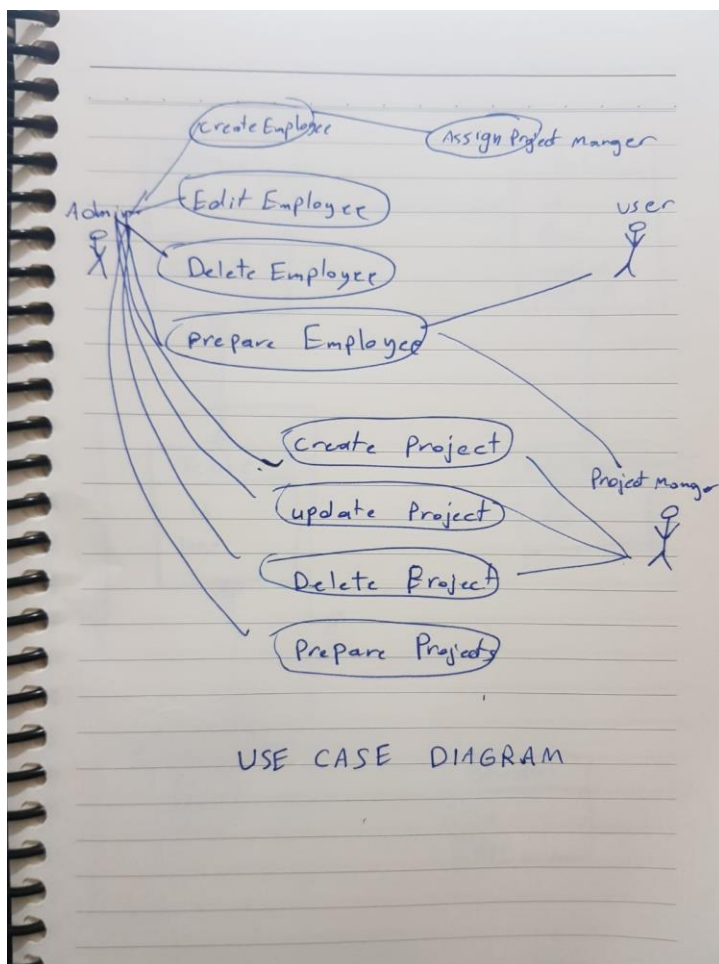 Create Employee
Assign Project Manger
Admin
Edit Employee
user
Delete Employee
prepare Employee
Create Project
Project Manger
update Project
Delete Project
Prepare Projects
USE CASE DIAGRAM